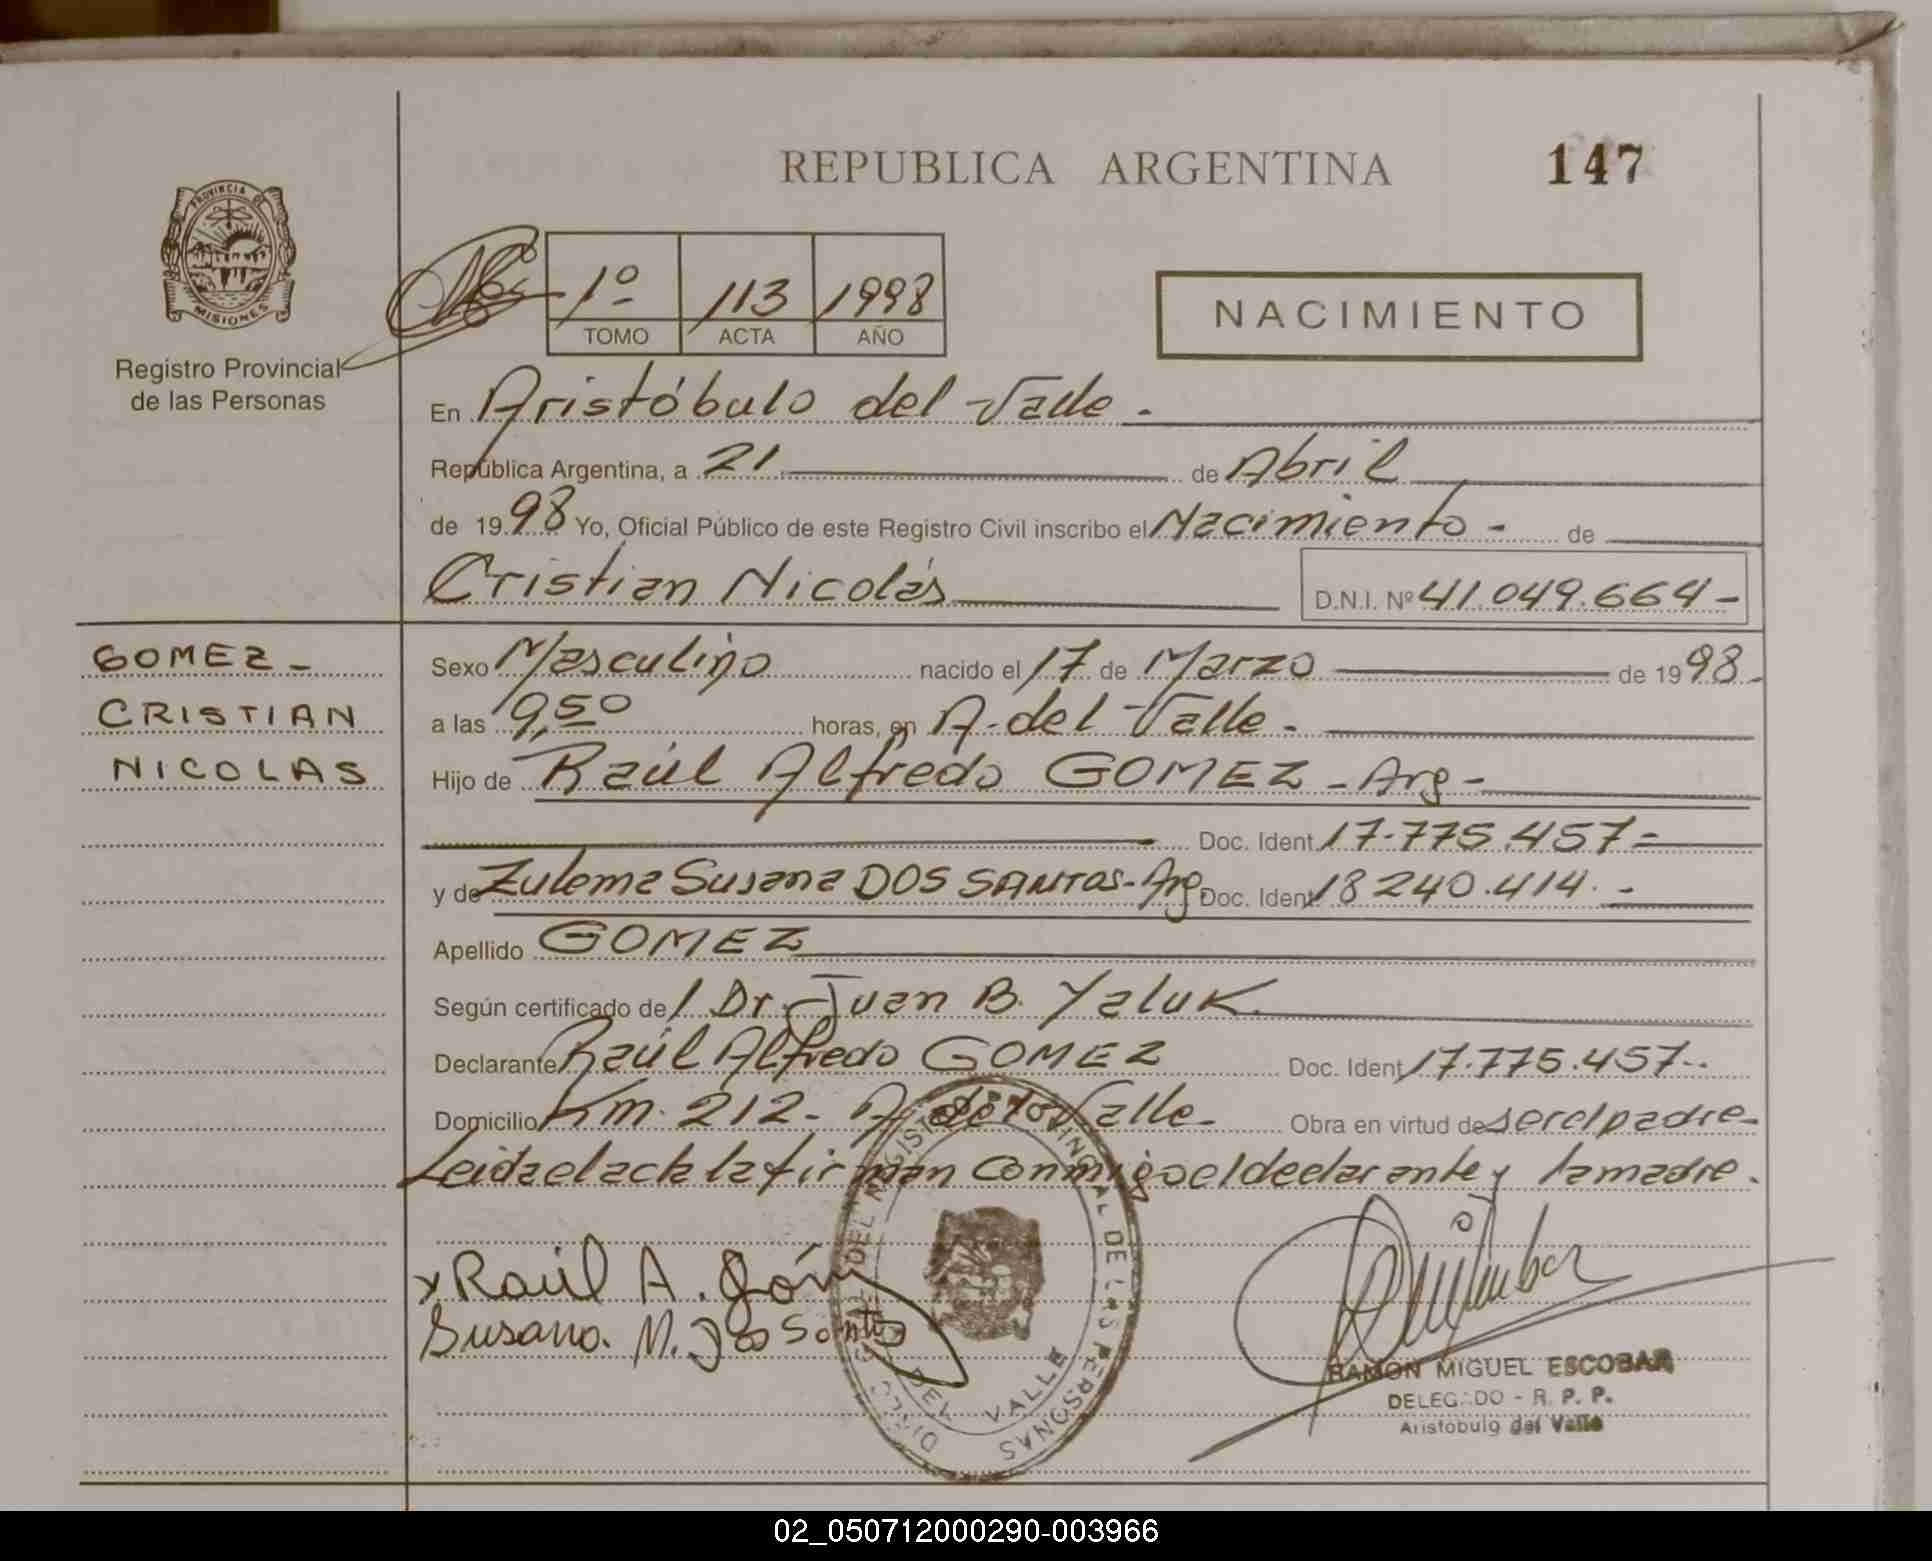 REPUBLICA ARGENTINA
147
PROVINCIA DE
MISIONES
Registro Provincial
de las Personas
1º 113 1998
TOMO ACTA AÑO
NACIMIENTO
En Aristóbulo del Valle.
República Argentina, a 21 de Abril
de 1998 Yo, Oficial Público de este Registro Civil inscribo el Nacimiento - de
Cristian Nicolás D.N.I. Nº 41.049.664-
GOMEZ-
CRISTIAN
NICOLAS
Sexo Masculino nacido el 17 de Marzo de 1998.
a las 9,50 horas, en A. del Valle.
Hijo de Raúl Alfredo GOMEZ - Arg -
Doc. Ident 17.775.457=
y de Zulema Susana DOS SANTOS - Arg. Doc. Ident 18 240.414. -
Apellido GOMEZ
Según certificado de / Dr. Juan B. Yaluk.
Declarante Raúl Alfredo GOMEZ Doc. Ident 17.775.457-.
Domicilio Km. 212- A. del Valle- Obra en virtud de ser el padre-
Leida el acta la firman conmigo el declarante y la madre.
x Raúl A. Góm
Susana. M. Dos Santos
DEL REGISTRO PROVINCIAL DE LAS PERSONAS
DEL VALLE
RAMON MIGUEL ESCOBAR
DELEGADO - R. P. P.
Aristobulo del Valle
02_050712000290-003966